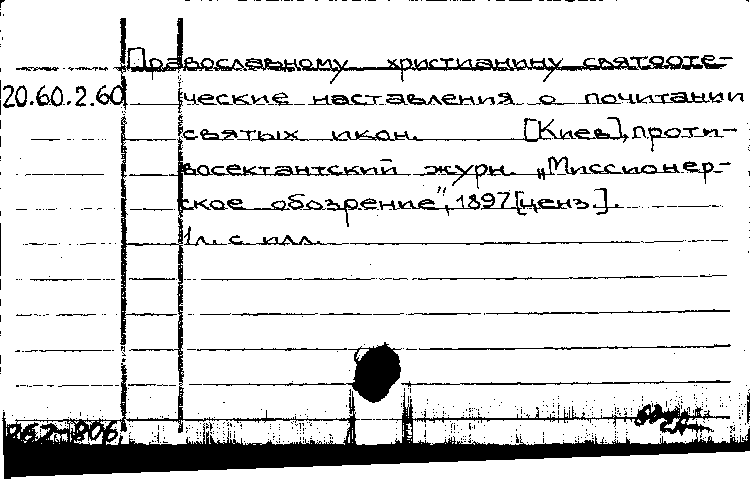 Православному христианину святооте-
20.60.2.60 ческие наставления о почитании
святых икон. [Киев], проти-
восектантский журн. „Миссионер-
ское обозрение", 1897 [ценз.].
1л. с илл.
262-806.